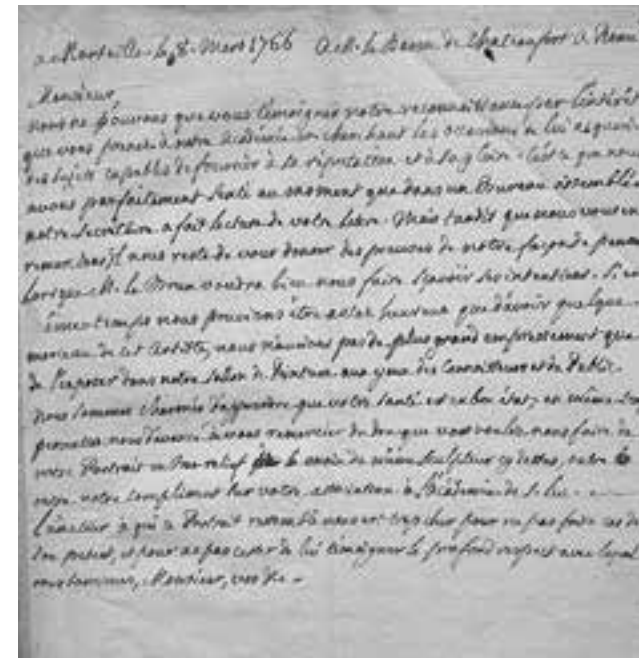 a Marseille le 8. Mars 1766 a M. le Baron de Chateaufort a Rome
Monsieur
nous ne pouvons que vous témoigner notre reconnaissance par l'intérêt
que vous prenez a notre académie en cherchant les occasions de lui
des sujets capables de fournir à sa réputation et à sa gloire. C'est ce que nous
avons parfaitement senti au moment que dans un Bureau assemblé
notre secrétaire a fait lecture de votre lettre. Mais tandis que nous vous en
il nous reste de vous donner des preuves de notre façon de penser
lorsque M. le Brun voudra bien nous faire sçavoir ses intentions. Si en
même temps nous pouvions être assez heureux que d'avoir quelque
morceau de cet Artiste, nous n'aurions pas de plus grand empressement que
de l'exposer dans notre Sallon de Peinture aux yeux des Connoisseurs et du Public.
nous sommes charmés d'apprendre que votre santé est en bon état, en même
permettez nous d'avance à vous remercier du don que vous voulez nous faire de
votre Portrait en relief de la main du même Sculpteur cy dessus, outre
notre compliment sur votre association à l'académie de S. Luc.
L'amateur à qui ce Portrait ressemble nous est trop cher pour ne pas faire cas de
son présent, et pour ne pas cesser de lui témoigner le profond respect avec lequel
nous sommes, Monsieur, vos &c.